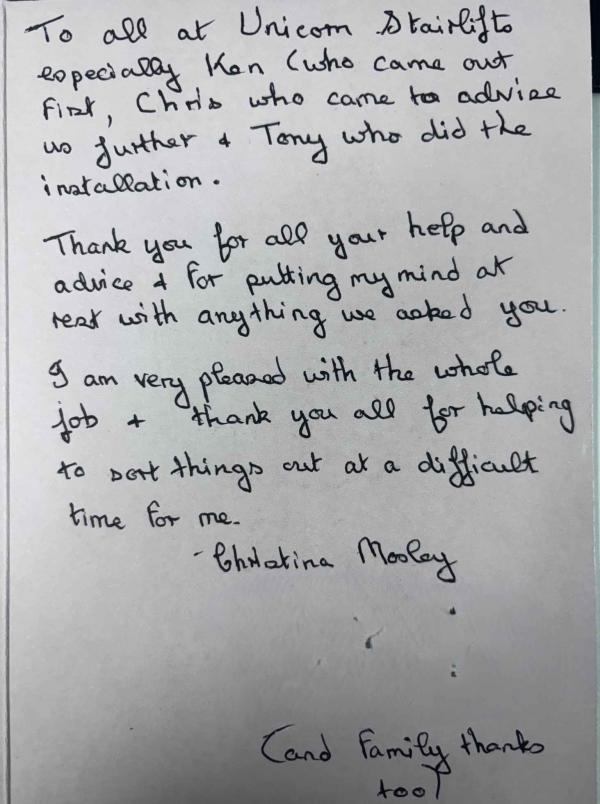 To all at Unicorn Stairlifts
especially Ken (who came out
first, Chris who came to advise
us further & Tony who did the
installation.
Thank you for all your help and
advice & for putting my mind at
rest with anything we asked you.
I am very pleased with the whole
job & thank you all for helping
to sort things out at a difficult
time for me.
- Christina Mosley
(and Family thanks
too)